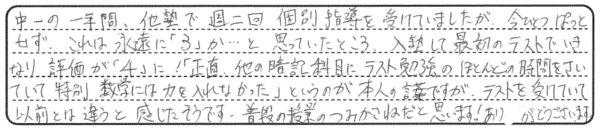 中一の一年間、他塾で週二回個別指導を受けていましたが、今ひとつぱっと
せず、これは永遠に「3」か…と思っていたところ、入塾して最初のテストでいき
なり評価が「4」に!「正直、他の暗記科目にテスト勉強のほとんどの時間をさい
ていて特別数学には力を入れなかった」というのが本人の言葉ですが、テストを受けていて
以前とは違うと感じたそうです。普段の授業のつみかさねだと思います!あり
がとうございます